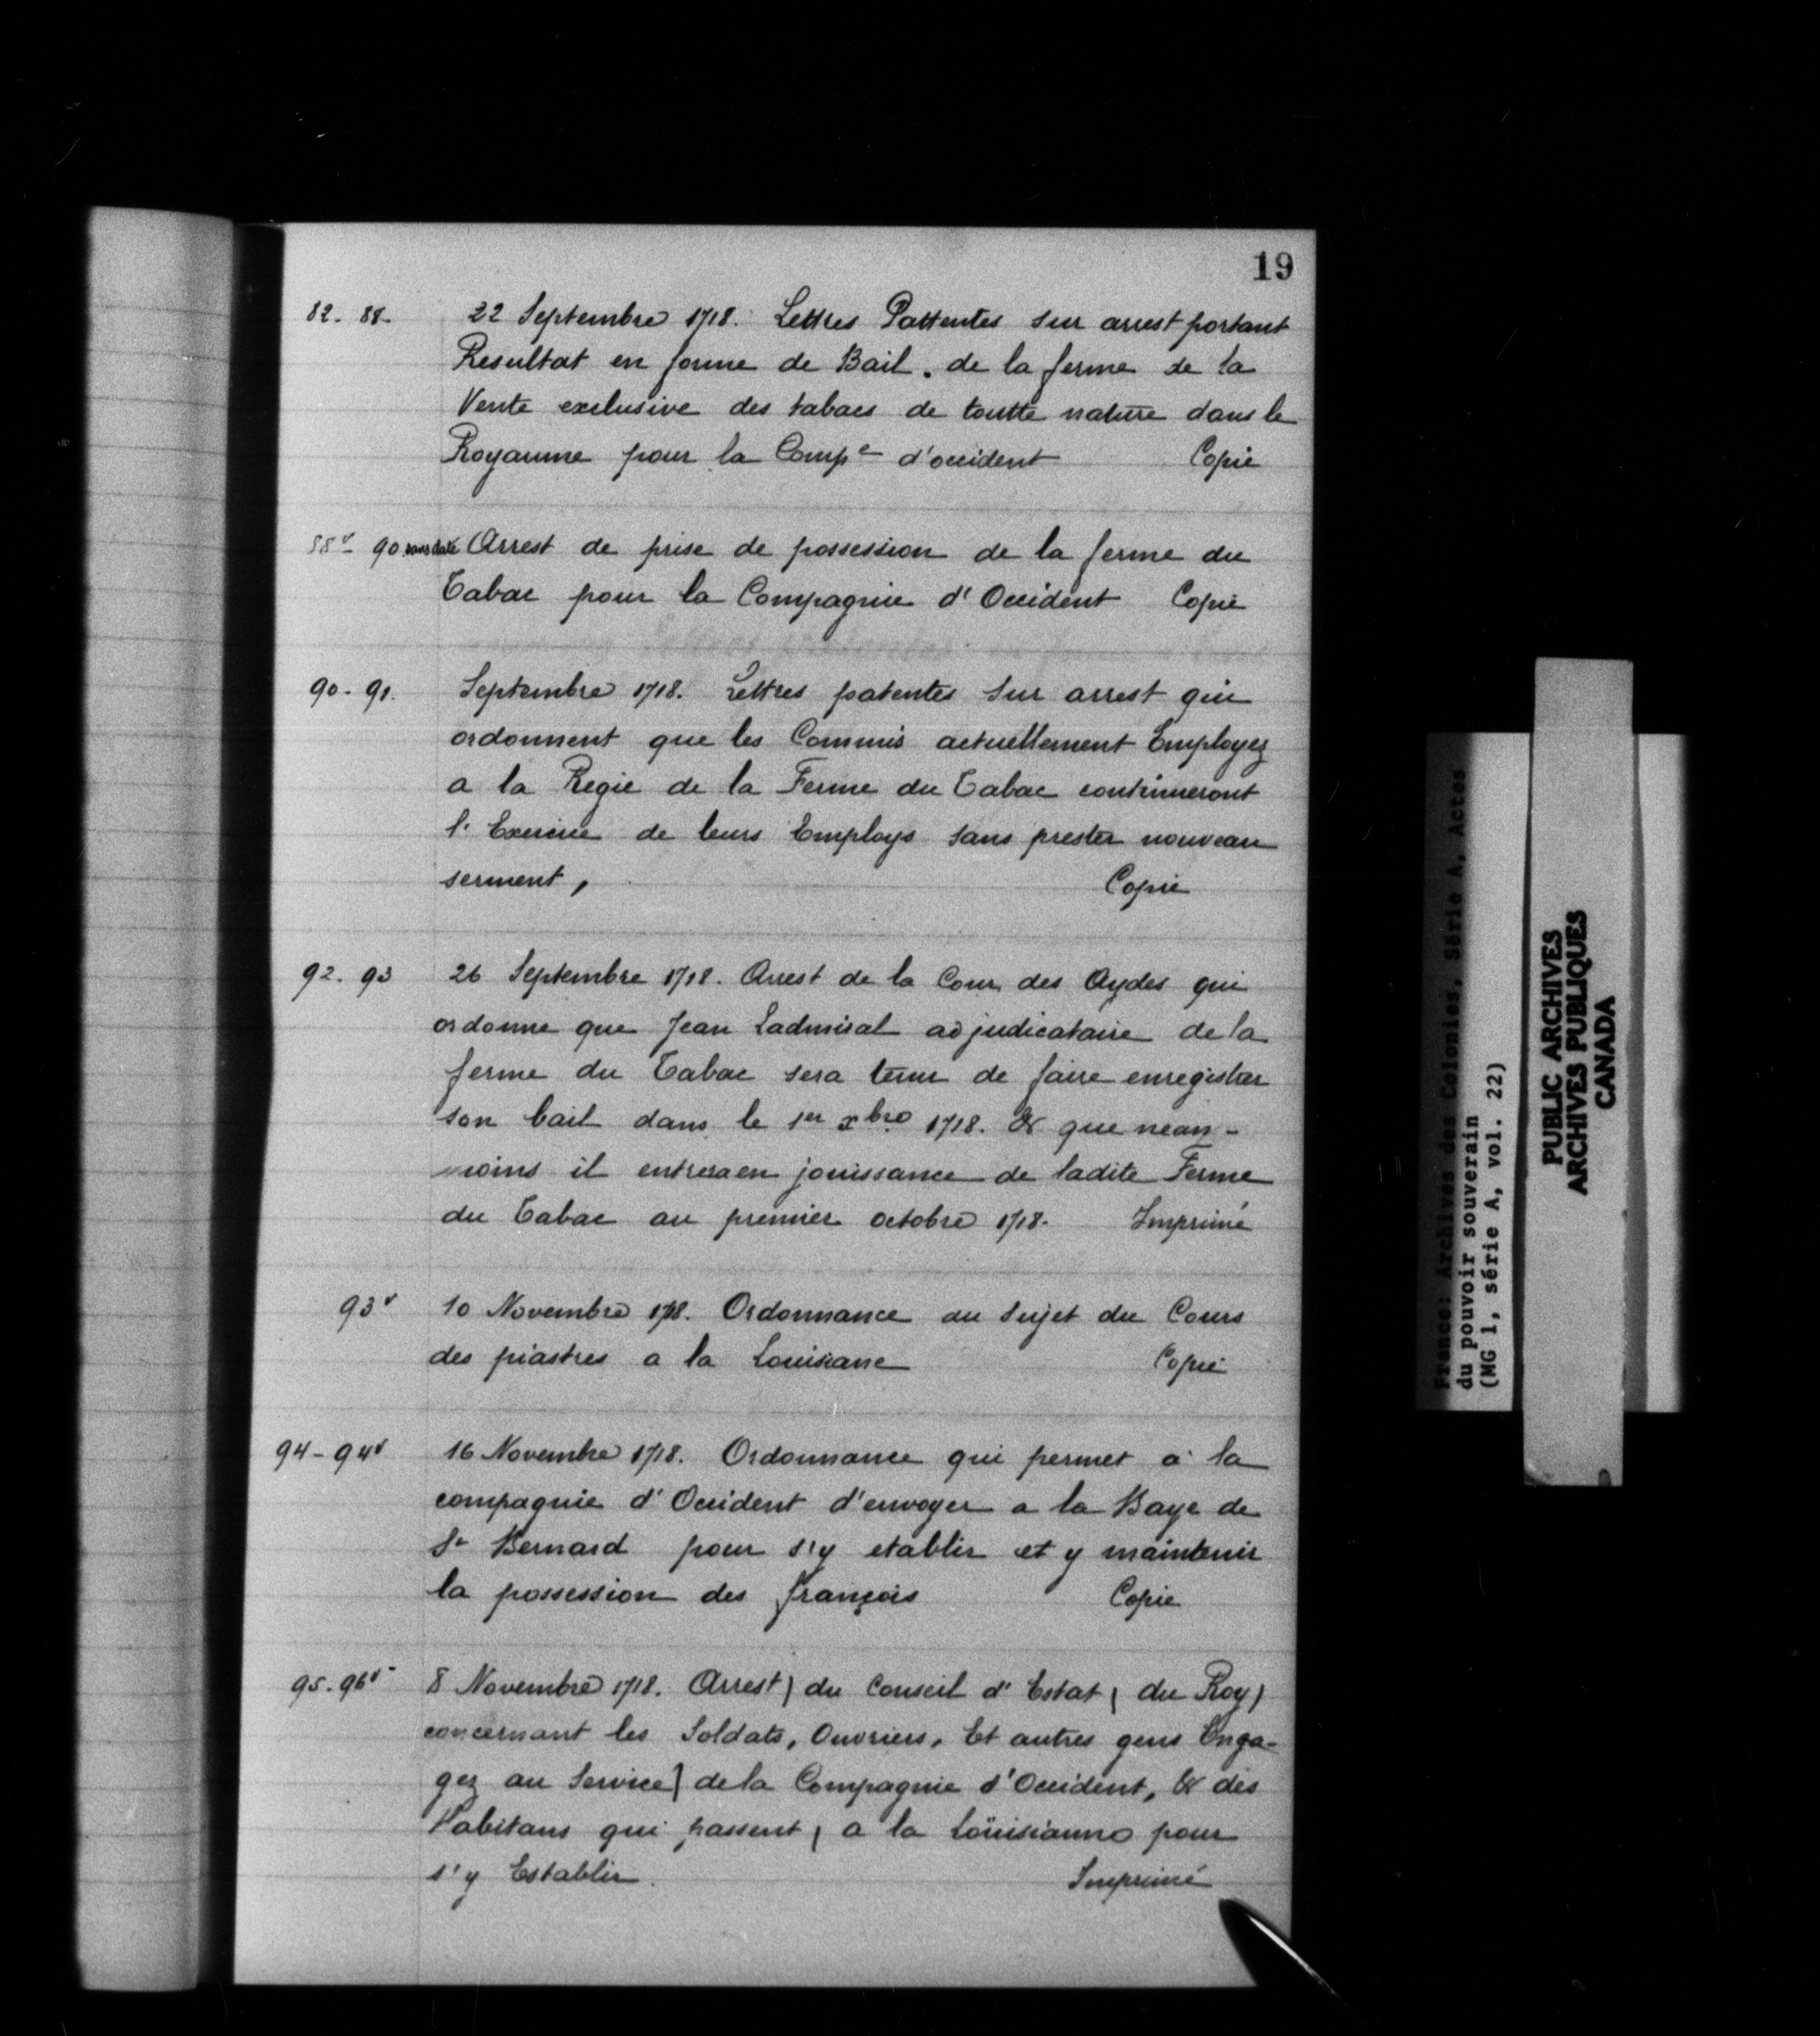 19
82-88- 22 Septembre 1718. Lettres Pattentes sur arrest portant
Resultat en forme de Bail. de la ferme de la
Vente exclusive des tabacs de toutte nature dans le
Royaume pour la Compe d'occident Copie
88v- 90 sans date Arrest de prise de possession de la ferme du
Tabac pour la Compagnie d'Occident Copie
90-91. Septembre 1718. Lettres patentes sur arrest qui
ordonnent que les Commis actuellement Employez
a la Regie de la Ferme du Tabac continueront
l'Exercice de leurs Employs sans prester nouveau
serment, Copie
92.93 26 Septembre 1718. Arrest de la Cour des Aydes qui
ordonne que Jean Ladmiral adjudicataire de la
ferme du Tabac sera tenu de faire enregistrer
son bail dans le 1er xbre 1718. & que nean-
moins il entrera en jouissance de ladite Ferme
du Tabac au premier octobre 1718. Imprimé
93v 10 Novembre 1718. Ordonnance au sujet du Cours
des piastres a la Louisiane Copie
94-94v 16 Novembre 1718. Ordonnance qui permet à la
compagnie d'Occident d'envoyer a la Baye de
St Bernard pour s'y etablir et y maintenir
la possession des françois Copie
95.96v 8 Novembre 1718. Arrest) du Conseil d'Estat ( du Roy)
concernant les Soldats, Ouvriers, Et autres gens Enga-
gez au Service) de la Compagnie d'Occident, & des
Habitans qui passent, a la Loüisianne pour
s'y Establir. Imprimé
France: Archives des Colonies, Série A, Actes
du pouvoir souverain
(MG 1, série A, vol. 22)
PUBLIC ARCHIVES
ARCHIVES PUBLIQUES
CANADA